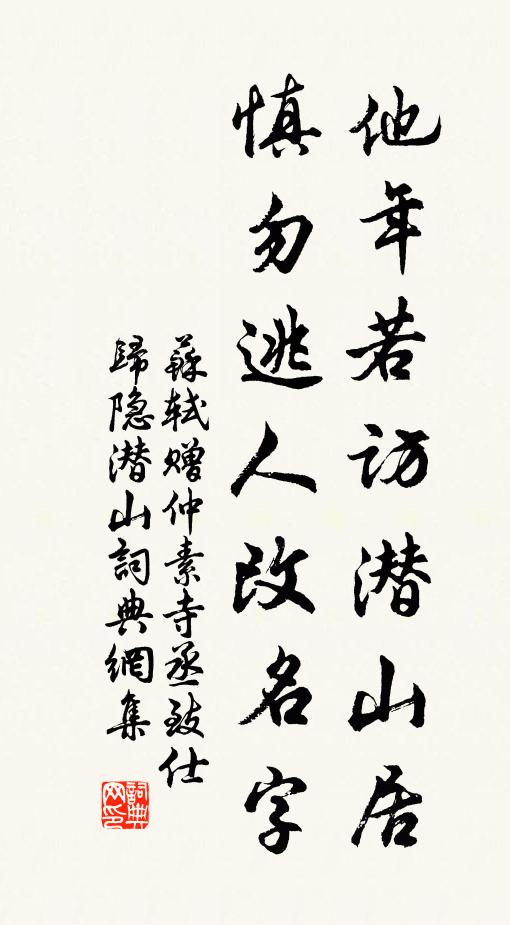 他年若访潜山居
慎勿逃人改名字
蘇軾赠仲素寺丞致仕
歸隐潜山詞典網集
詞典
网印